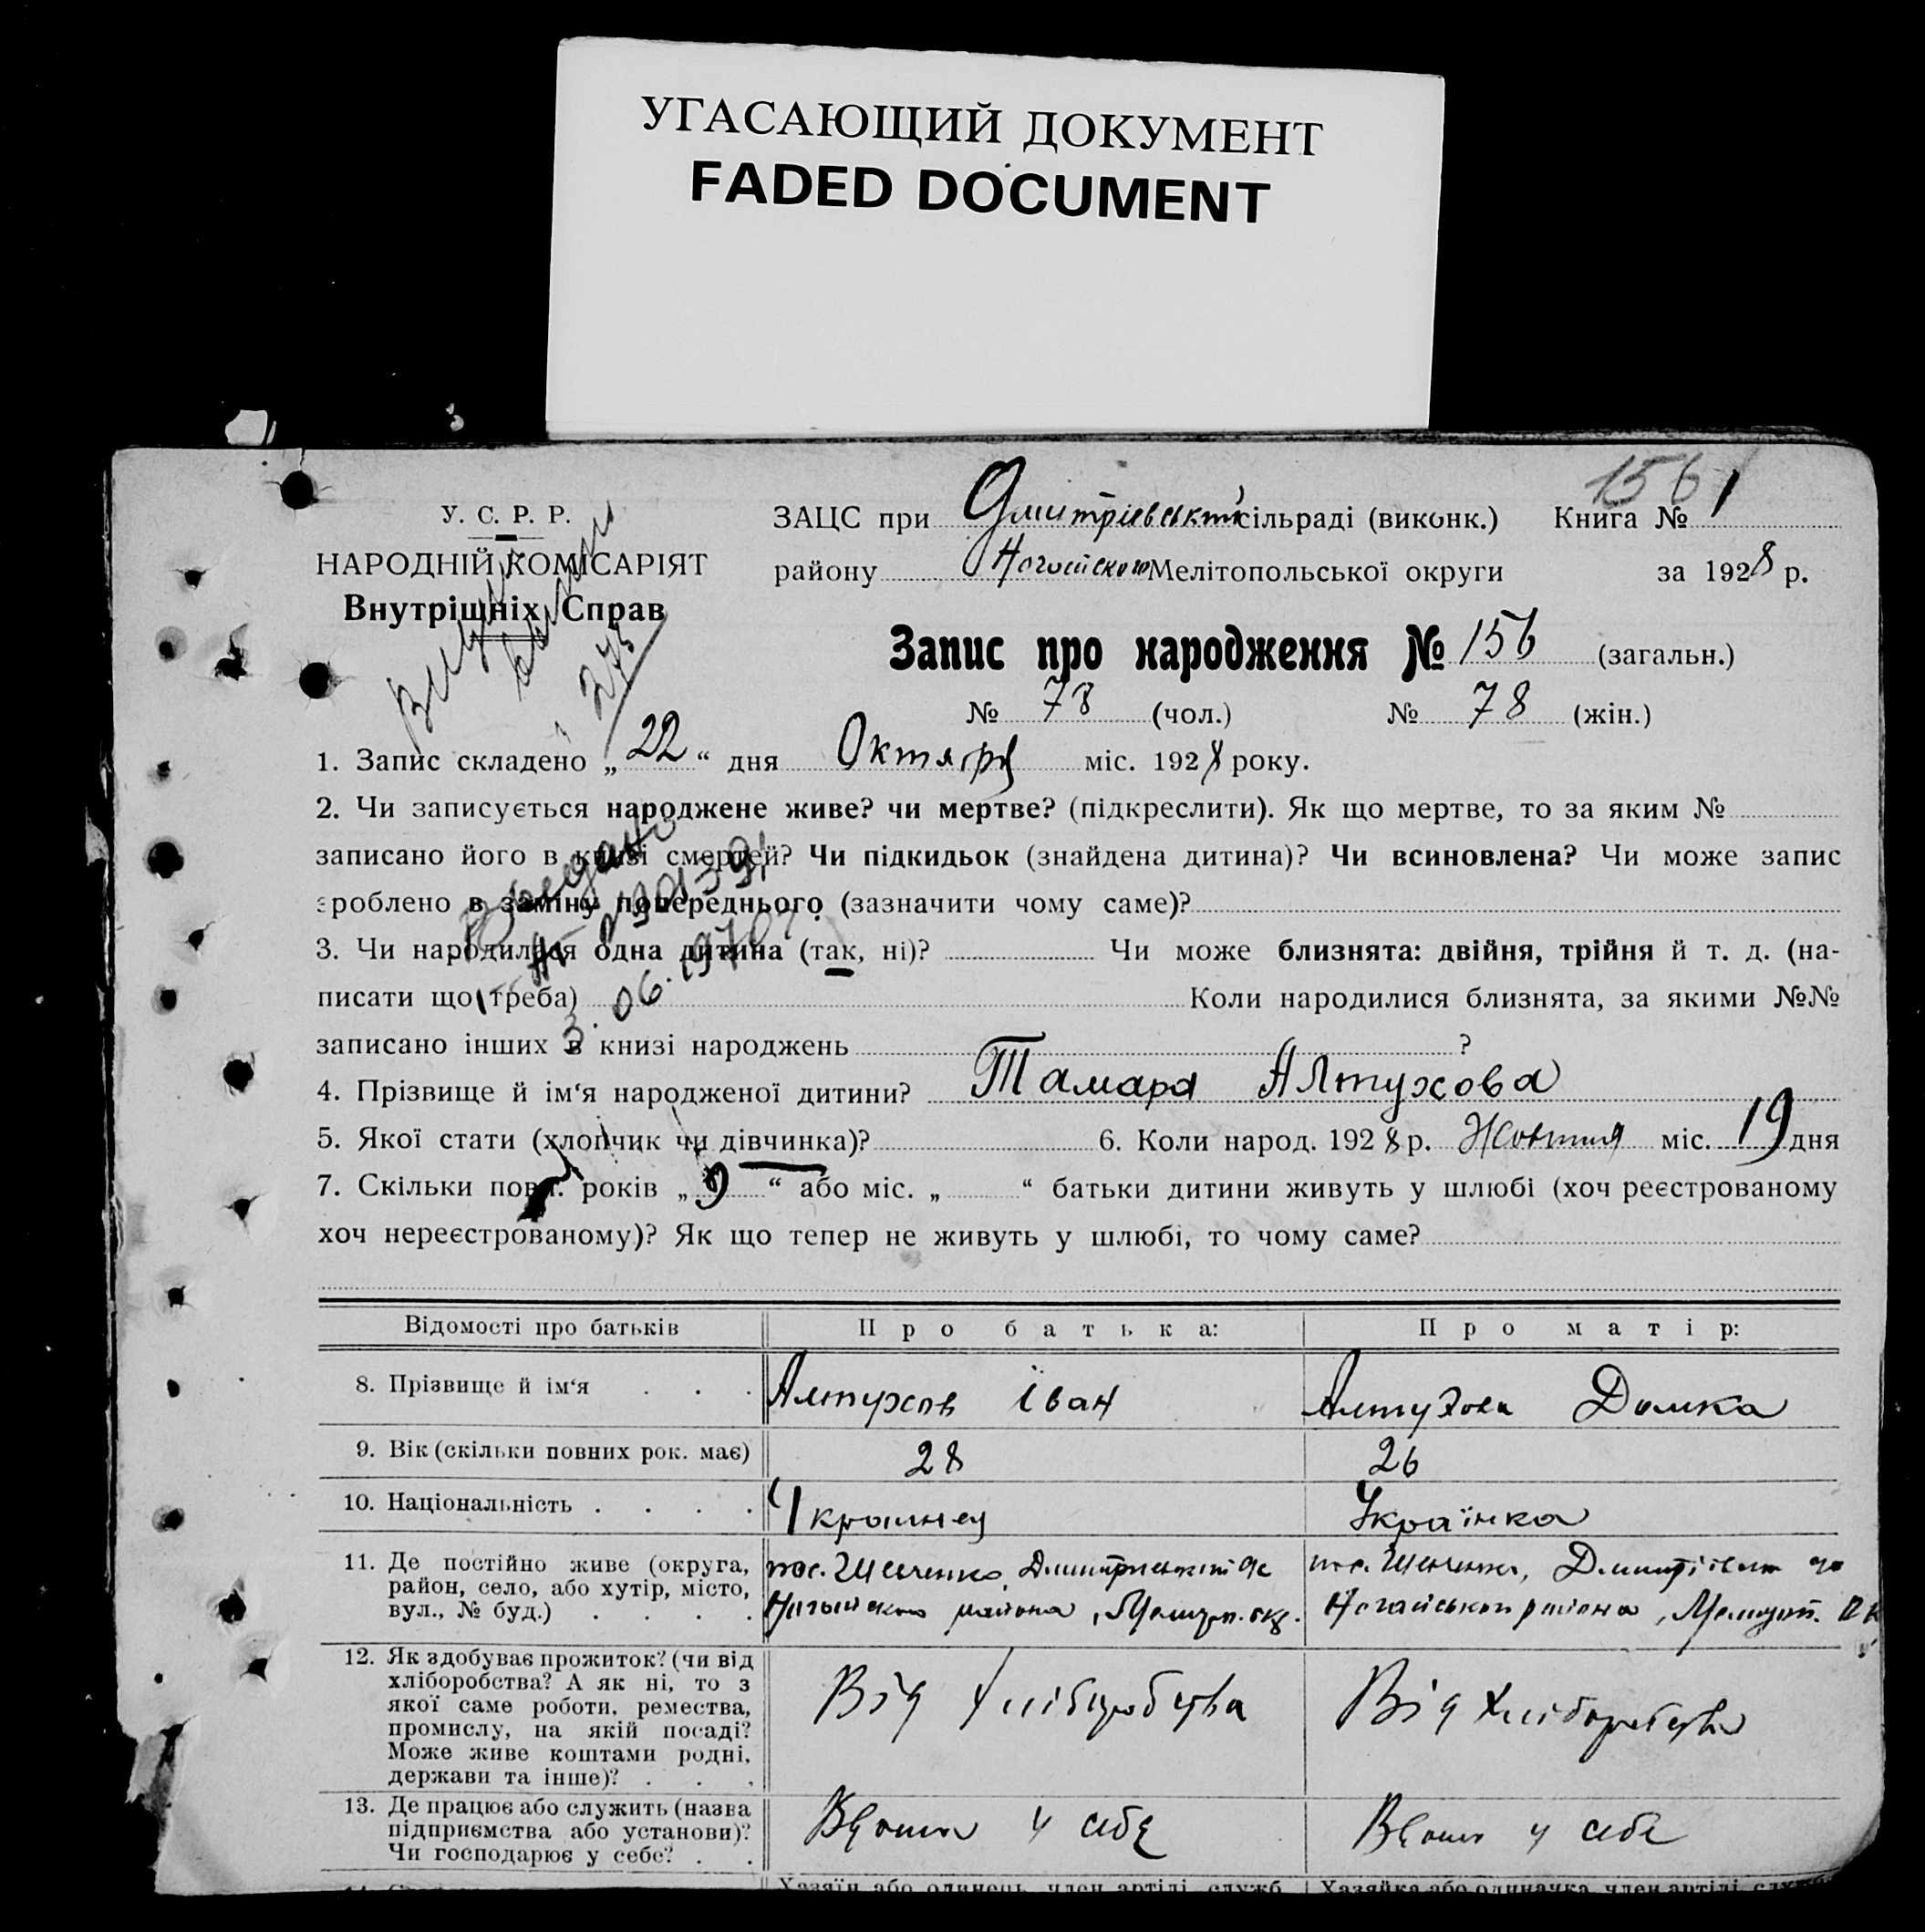 УГАСАЮЩИЙ ДОКУМЕНТ
FADED DOCUMENT
156
У. С. Р. Р.
НАРОДНІЙ КОМІСАРІЯТ
Внутрішніх Справ
273
ЗАЦС при Дмитрієвській сільраді (виконк.) Книга № 1
району Ногайского Мелітопольської округи за 1928 р.
Запис про народження № 156 (загальн.)
№ 78 (чол.) № 78 (жін.)
1. Запис складено „22“ дня Октября міс. 1928 року.
2. Чи записується народжене живе? чи мертве? (підкреслити). Як що мертве, то за яким №
записано його в книзі смертей? Чи підкидьок (знайдена дитина)? Чи всиновлена? Чи може запис
зроблено в заміну попереднього (зазначити чому саме)?
Выдано
3. 06. 1970
3. Чи народилася одна дитина (так, ні)? Чи може близнята: двійня, трійня й т. д. (на-
писати що треба) Коли народилися близнята, за якими №№
записано інших в книзі народжень ?
4. Прізвище й ім‘я народженої дитини? Тамара Алтухова
5. Якої стати (хлопчик чи дівчинка)? 6. Коли народ. 1928 р. Жовтня міс. 19 дня
7. Скільки повн. років „9“ або міс. „ “ батьки дитини живуть у шлюбі (хоч реєстрованому
хоч нереєстрованому)? Як що тепер не живуть у шлюбі, то чому саме?
Відомості про батьків Про батька: Про матір:
8. Прізвище й ім‘я Алтухов Іван Алтухова Домка
9. Вік (скільки повних рок. має) 28 26
10. Національність Украинец Українка
11. Де постійно живе (округа,
район, село, або хутір, місто,
вул., № буд.)
пос. Шевченко,
Ногайского района, Мелитоп. окр.
пос. Шевченко,
Ногайського района, Мелитоп. ок
12. Як здобуває прожиток? (чи від
хліборобства? А як ні, то з
якої саме роботи, ремества,
промислу, на якій посаді?
Може живе коштами родні,
держави та інше)?
Від хліборобства
Від хліборобства
13. Де працює або служить (назва
підприємства або установи)?
Чи господарює у себе?
Вдома у себе
Вдома у себе
Хазяїн або одинець, член артілі, служб. Хазяйка або одиначка, член артілі,